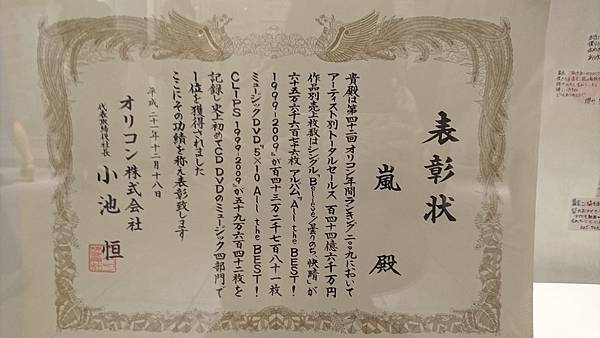 表彰状
嵐 殿
貴殿は第四十二回オリコン年間ランキング二〇〇九において
アーティスト別トータルセールス 百四十四億六千万円
作品別売上枚数はシングル「Believe/曇りのち、快晴」が
六十五万六千六百七十六枚 アルバム「All the BEST!
1999-2009」が百四十三万二千七百八十一枚
ミュージックDVD「5×10 All the BEST!
CLIPS 1999-2009」が五十九万六百四十二枚を
記録し史上初めてCD DVDのミュージック四部門で
1位を獲得されました
ここにその功績を称え表彰致します
平成二十一年十二月十八日
オリコン株式会社
代表取締役社長 小池 恒